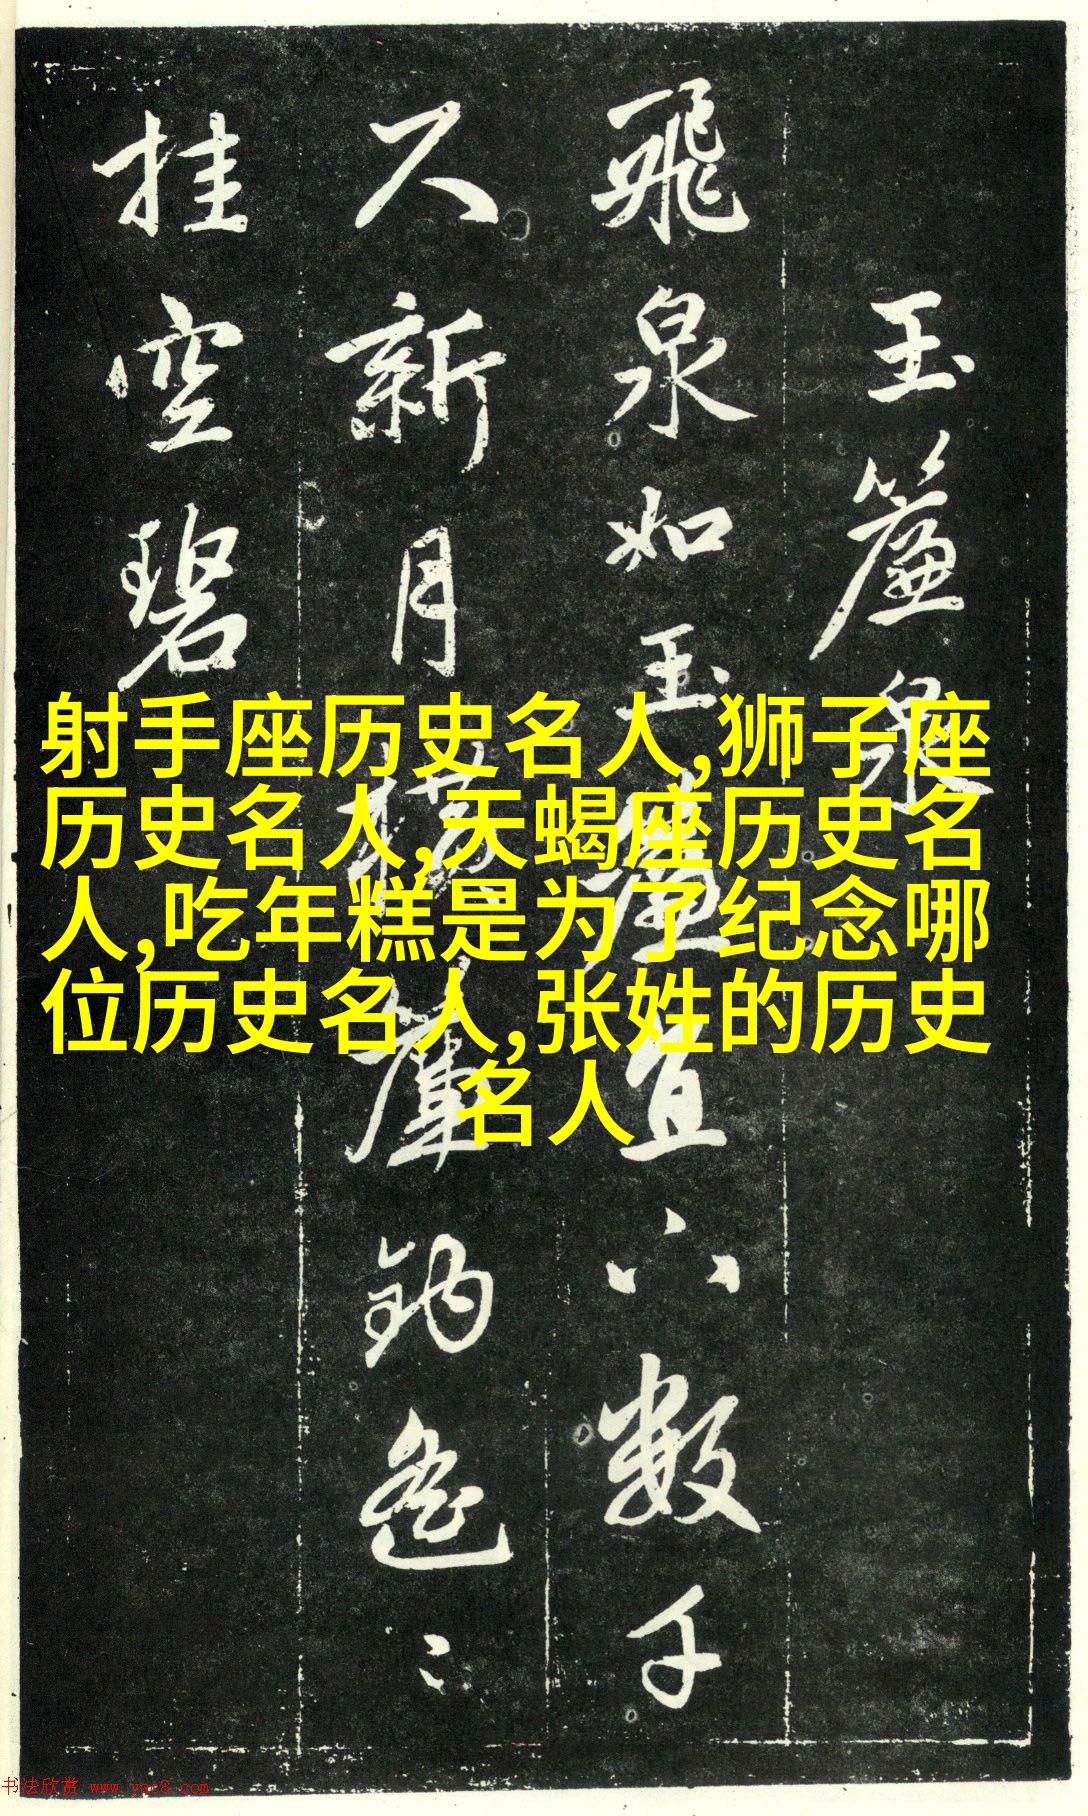 玉簾泉
飛泉如玉簾直下數千
尺新月橫簾鈎遙〻
挂空碧
射手座历史名人,狮子座
历史名人,天蝎座历史名
人,吃年糕是为了纪念哪
位历史名人,张姓的历史
名人
书法欣赏 www.yac8.com